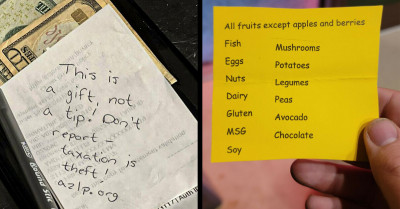 This is
a gift, not
a tip! Don't
report –
taxation is
theft!
azlp.org
All fruits except apples and berries
Fish
Eggs
Nuts
Dairy
Gluten
MSG
Soy
Mushrooms
Potatoes
Legumes
Peas
Avocado
Chocolate